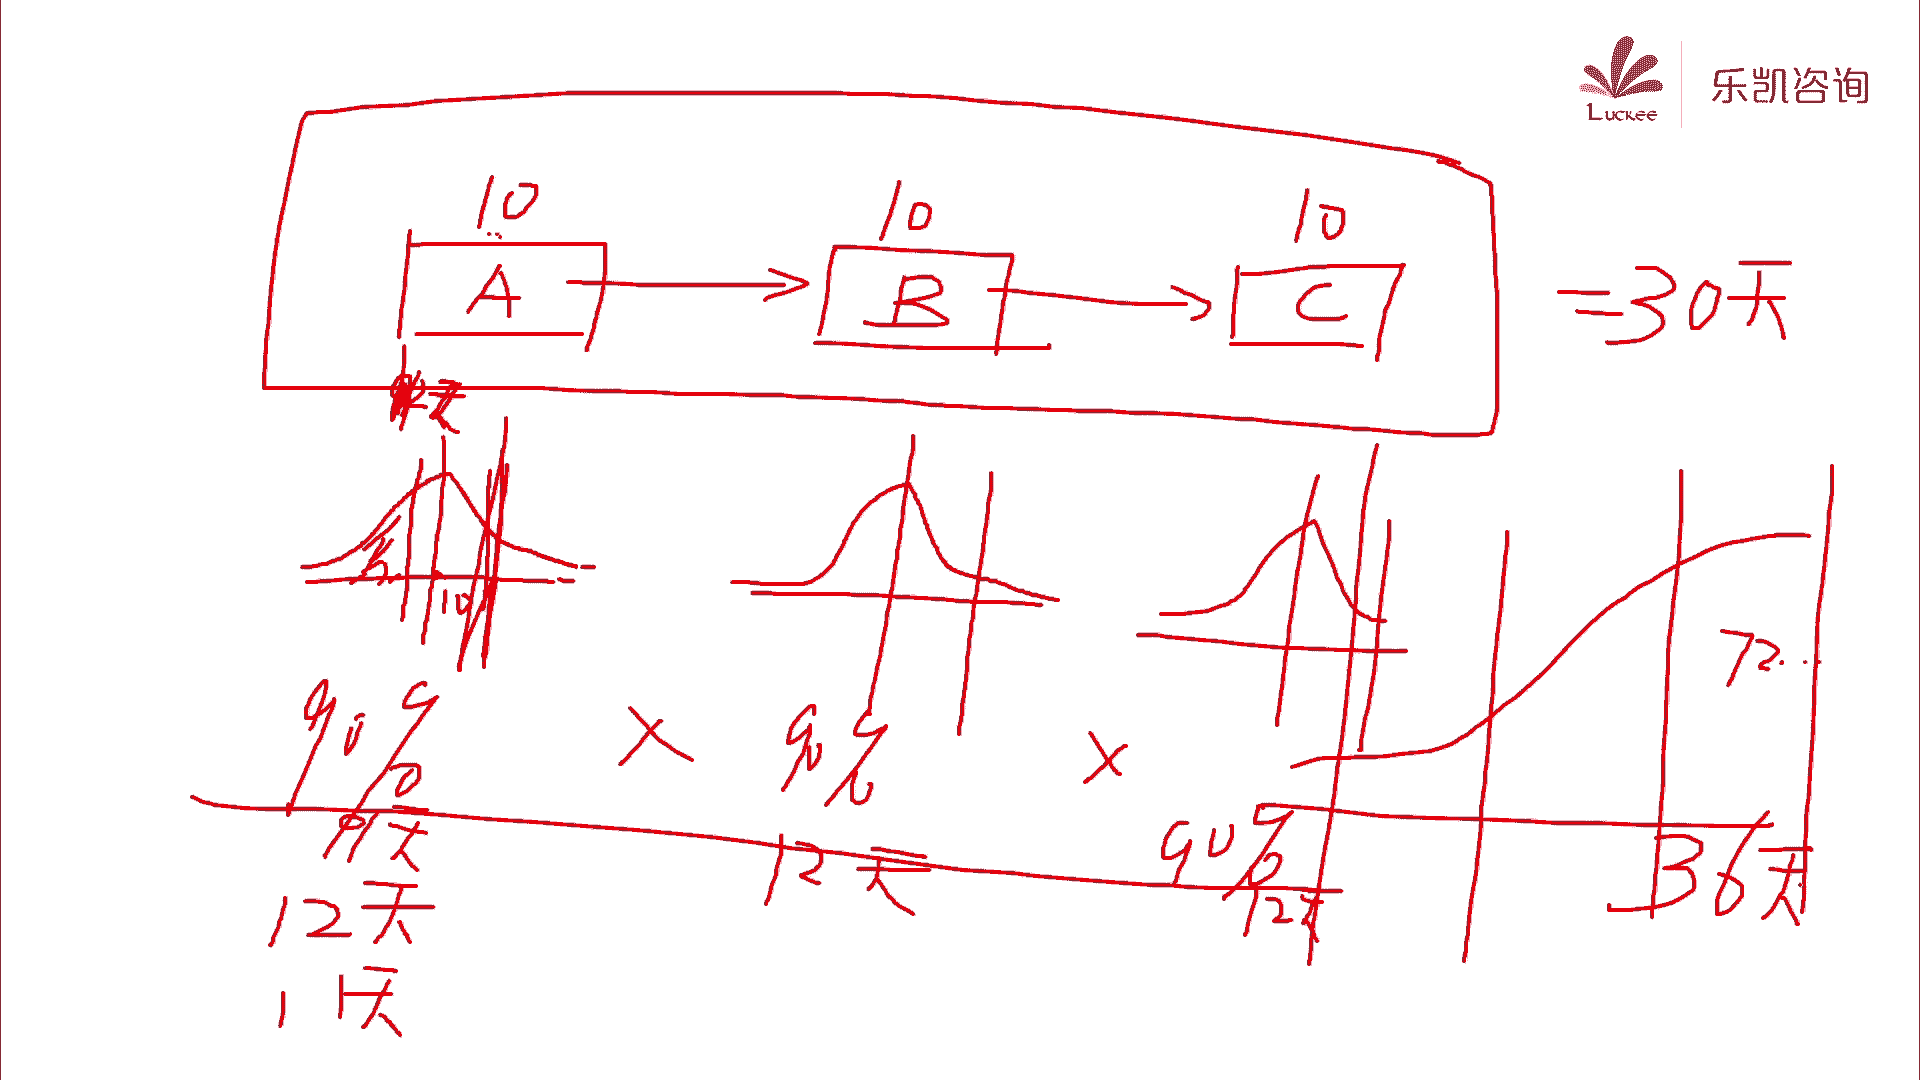 LUCKEE
乐凯咨询
10 10 10
A B C =30天
10
72..
90% × 90% × 90%
12天 12天 12天 36天
11天